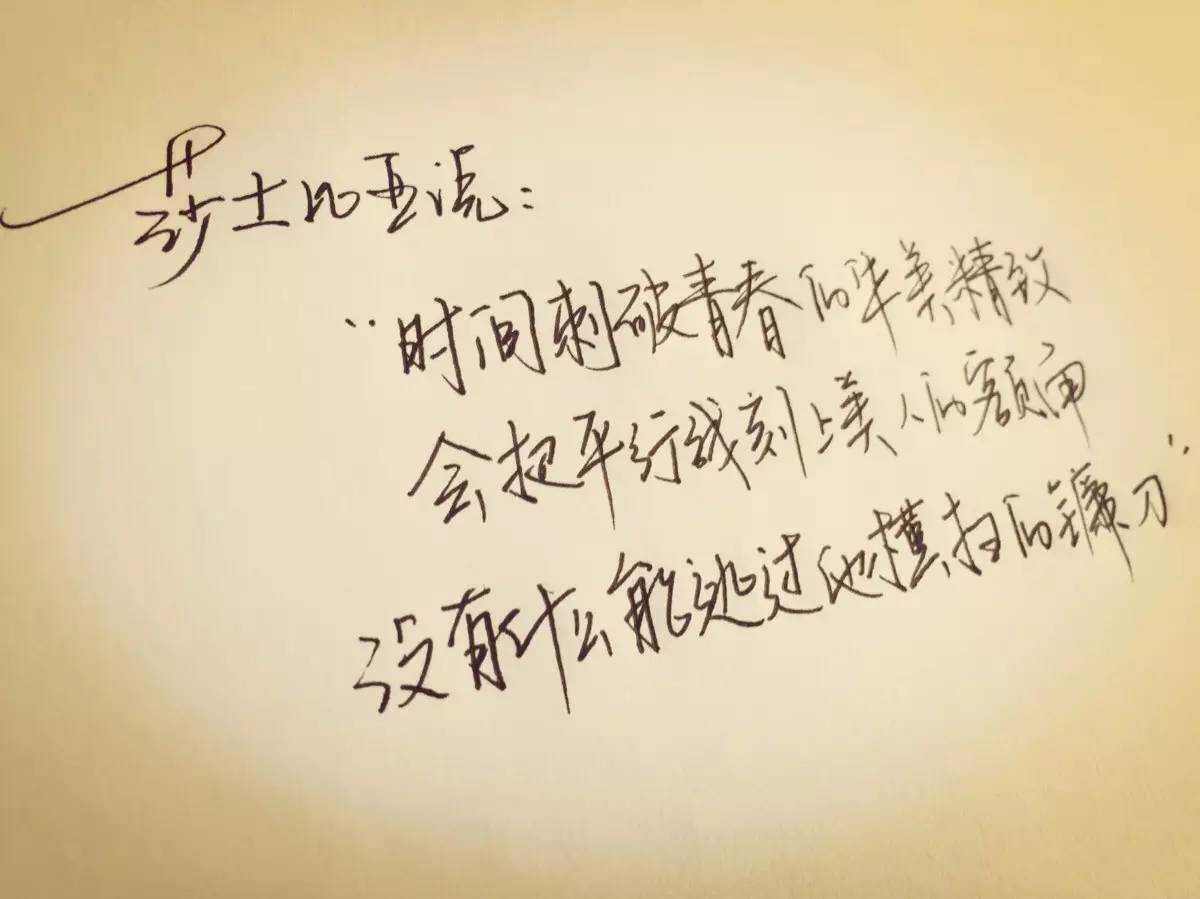 莎士比亚说：
“时间刺破青春的华美精致
会把平行线刻上美人的额角
没有什么能逃过他横扫的镰刀”